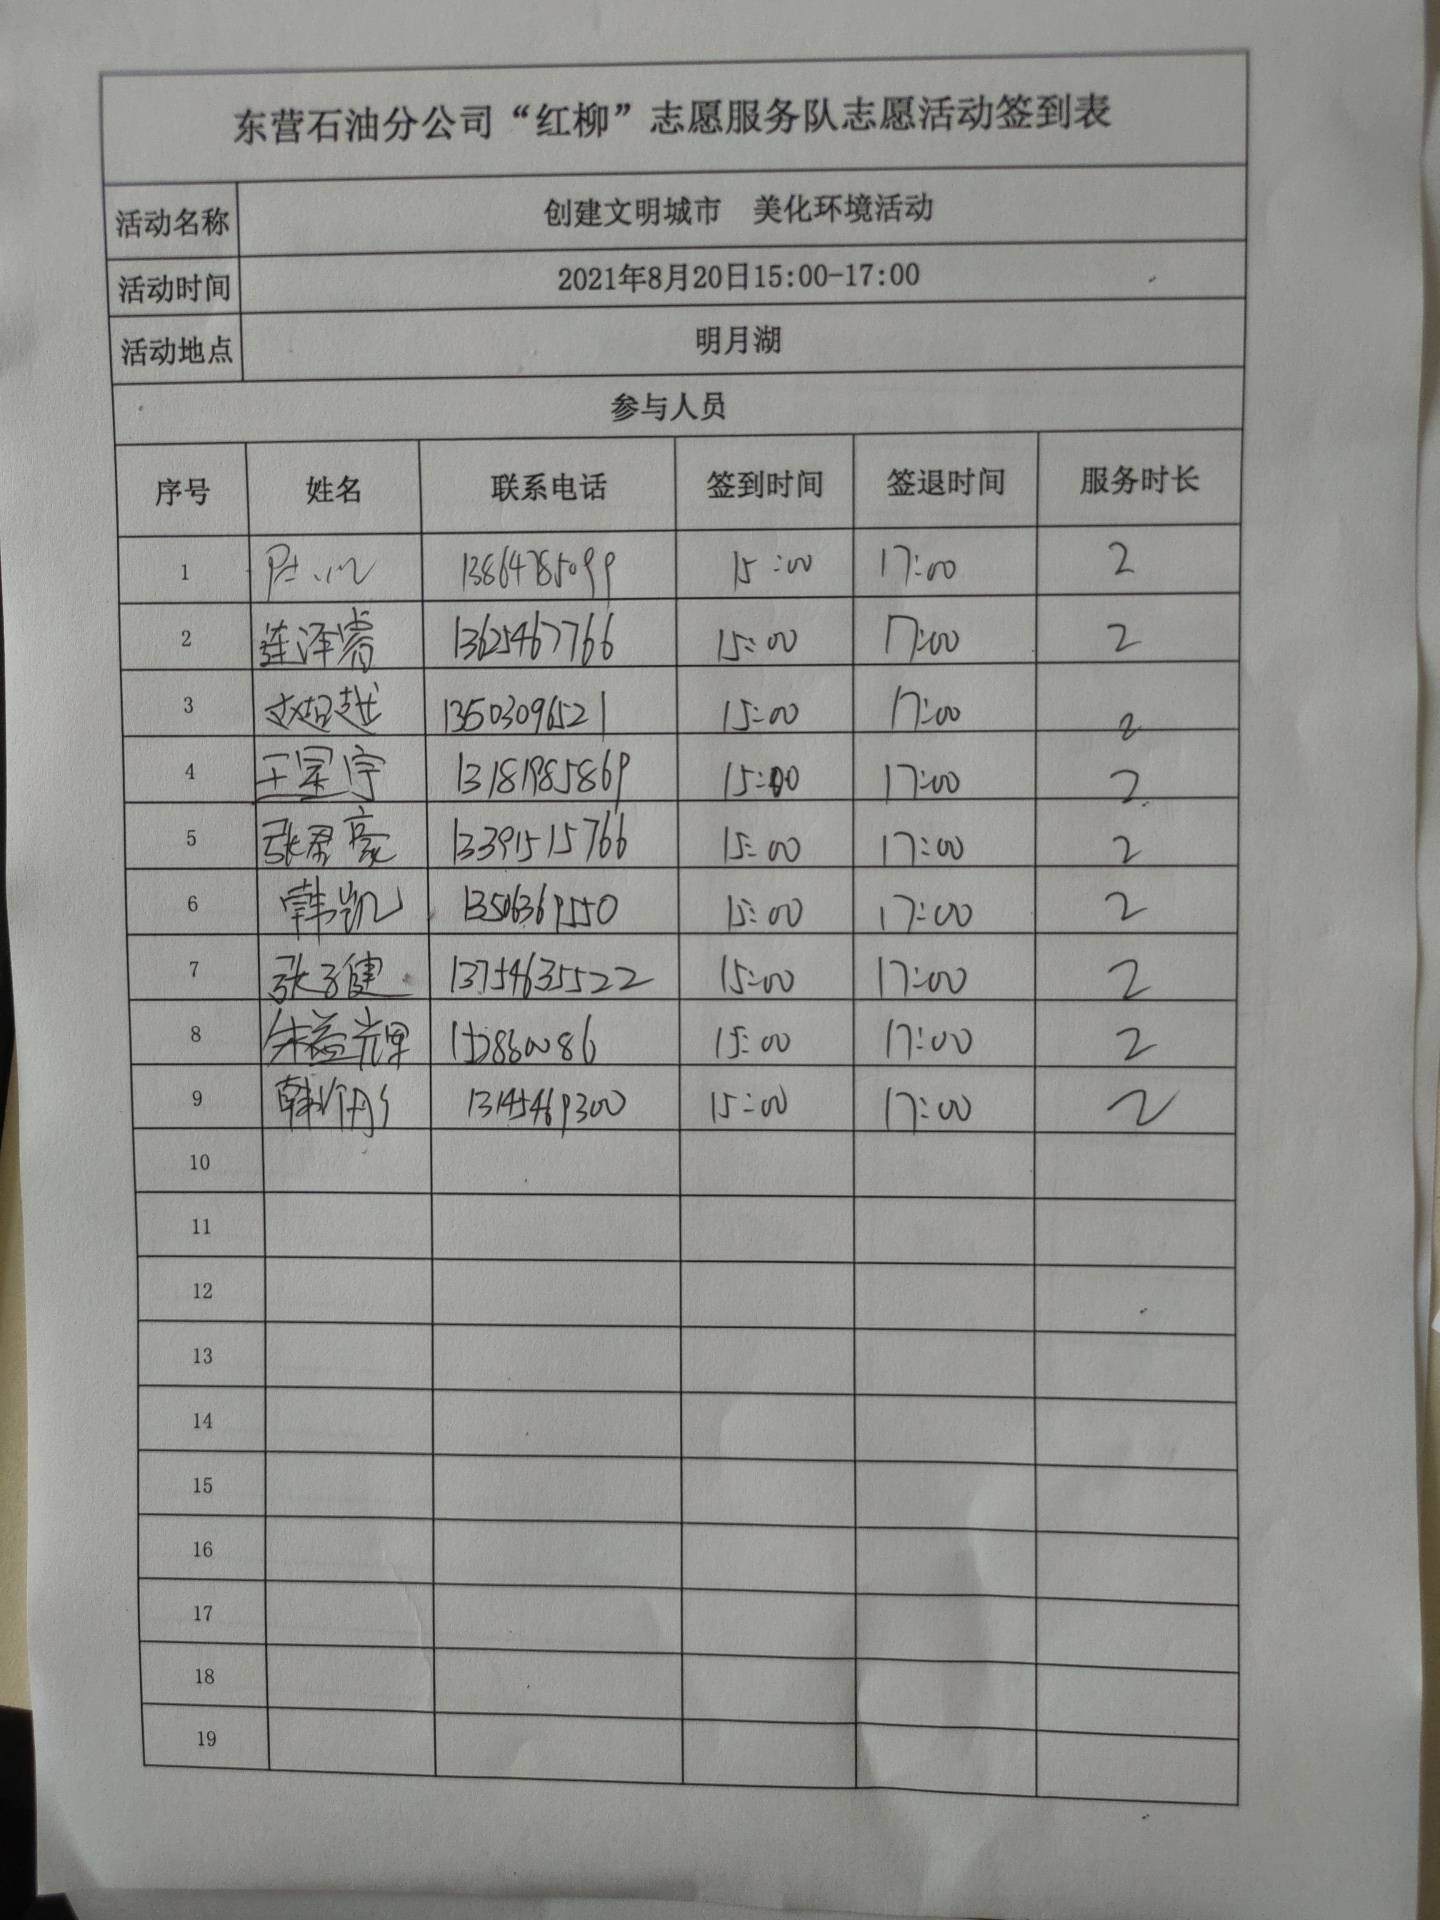 东营石油分公司“红柳”志愿服务队志愿活动签到表
活动名称 创建文明城市 美化环境活动
活动时间 2021年8月20日15:00-17:00
活动地点 明月湖
参与人员
序号 姓名 联系电话 签到时间 签退时间 服务时长
1 13864785099 15:00 17:00 2
2 连泽睿 13625467766 15:00 17:00 2
3 赵超越 13503096521 15:00 17:00 2
4 王星宇 13181985869 15:00 17:00 2
5 张君豪 13391515766 15:00 17:00 2
6 韩凯 13506369550 15:00 17:00 2
7 张子健 13754635522 15:00 17:00 2
8 朱益辉 15:00 17:00 2
9 13145469300 15:00 17:00 2
10
11
12
13
14
15
16
17
18
19